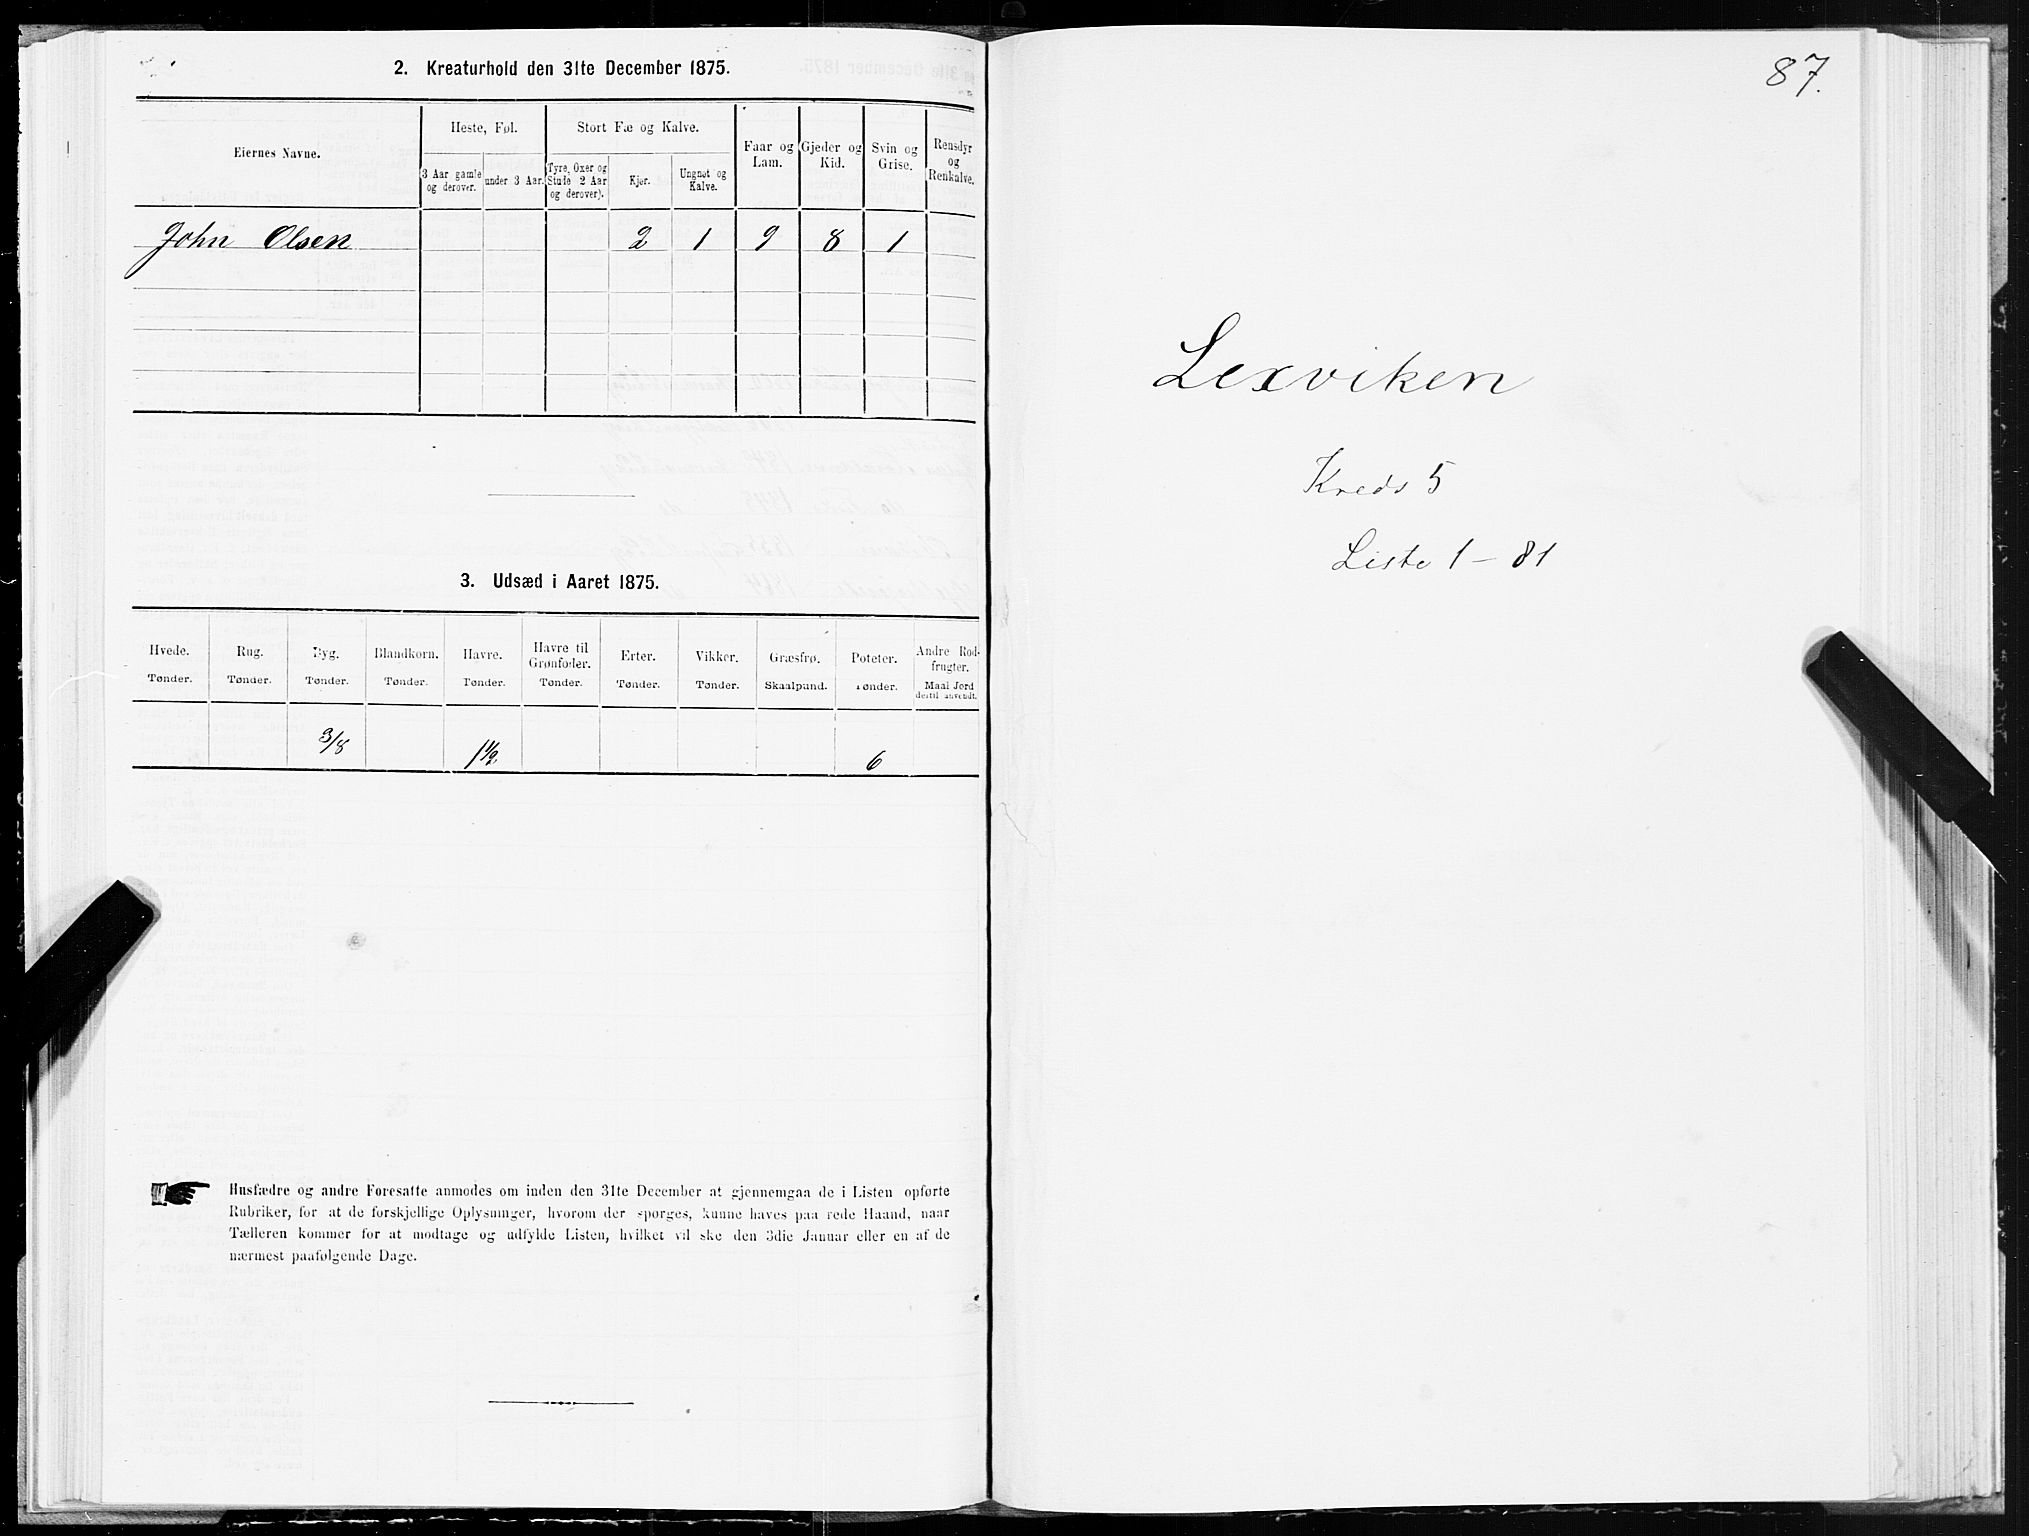 2. Kreaturhold den 31te December 1875.
Eiernes Navne.
Heste, Føl.
3 Aar gamle og derover.
under 3 Aar.
Stort Fæ og Kalve.
Tyre, Oxer og Stude 2 Aar og derover).
Kjør.
Ungnøt og Kalve.
Faar og Lam.
Gjeder og Kid.
Svin og Grise.
Rensdyr og Renkalve.
John Olsen 2 1 9 8 1
3. Udsæd i Aaret 1875.
Hvede. Rug. Byg. Blandkorn. Havre. Havre til Grønfoder. Erter. Vikker. Græsfrø. Poteter. Andre Rodfrugter.
Tønder. Tønder. Tønder. Tønder. Tønder. Tønder. Tønder. Tønder. Skaalpund. Tønder. Maal Jord dertil anvendt.
3/8 1 1/2 6
Husfædre og andre Foresatte anmodes om inden den 31te December at gjennemgaa de i Listen opførte
Rubriker, for at de forskjellige Oplysninger, hvorom der spørges, kunne haves paa rede Haand, naar
Tælleren kommer for at modtage og udfylde Listen, hvilket vil ske den 3die Januar eller en af de
nærmest paafølgende Dage.
87.
Lexviken
Kreds 5
Liste 1 - 81